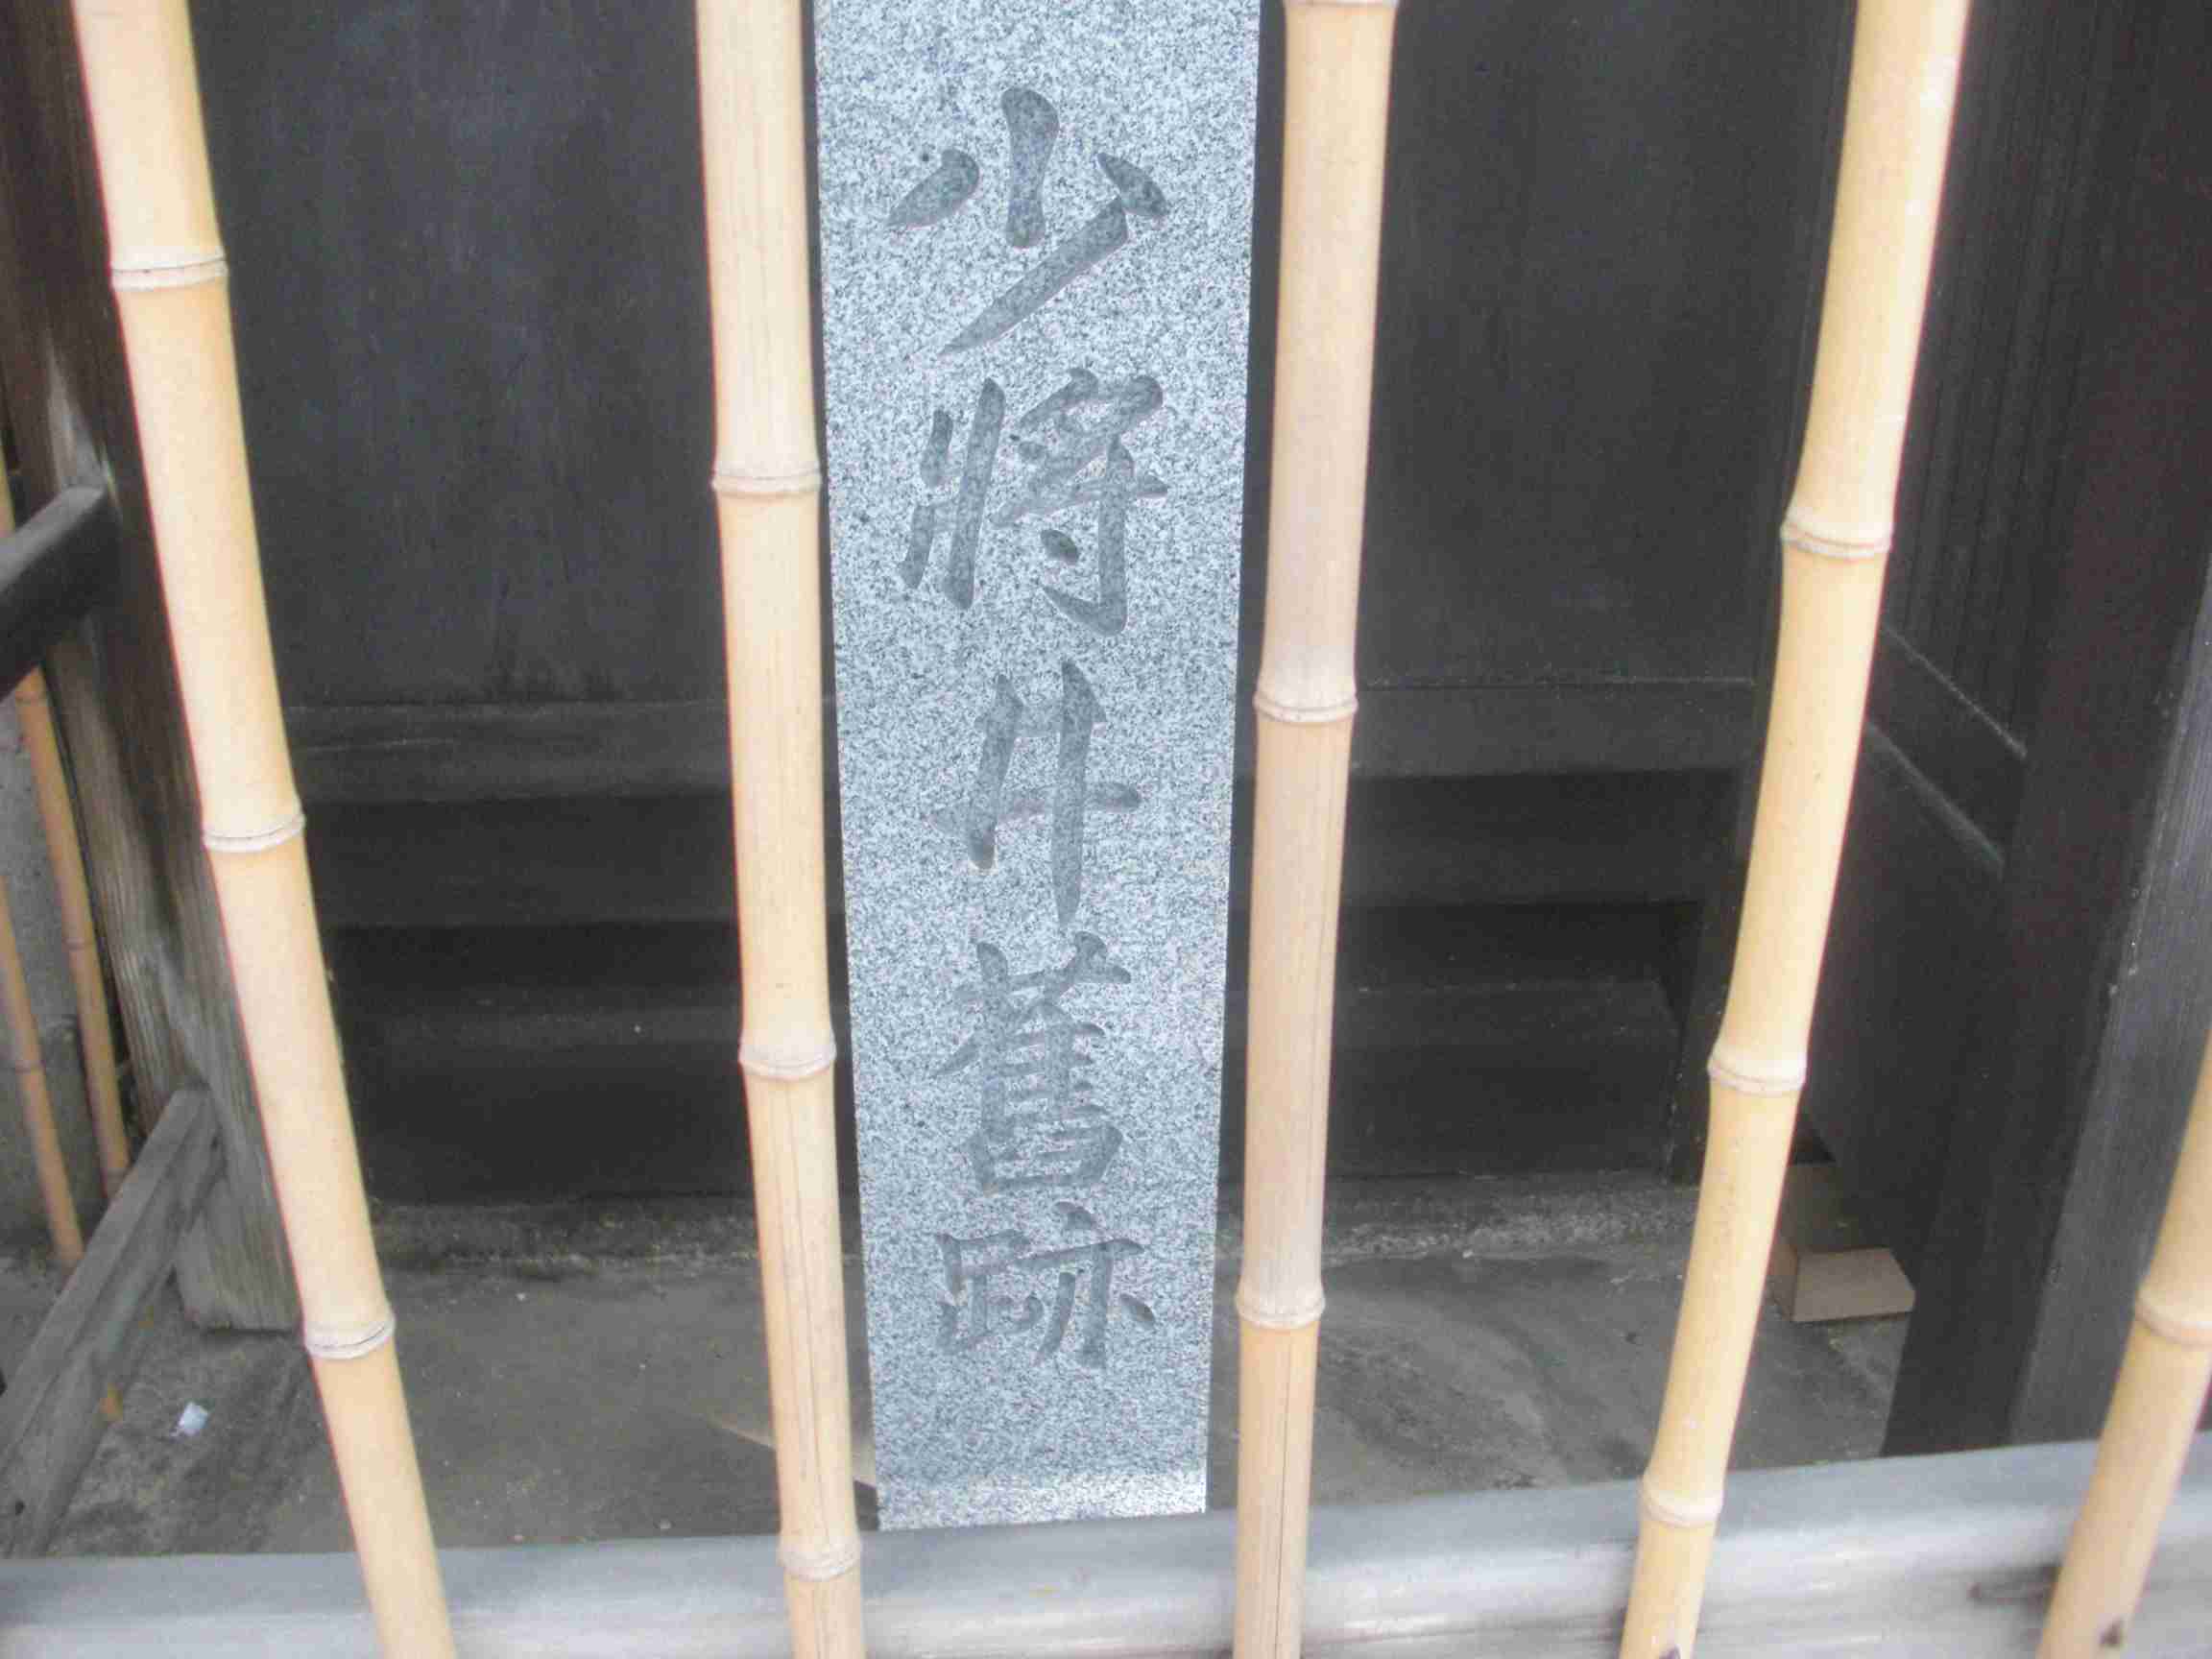 少將井舊跡